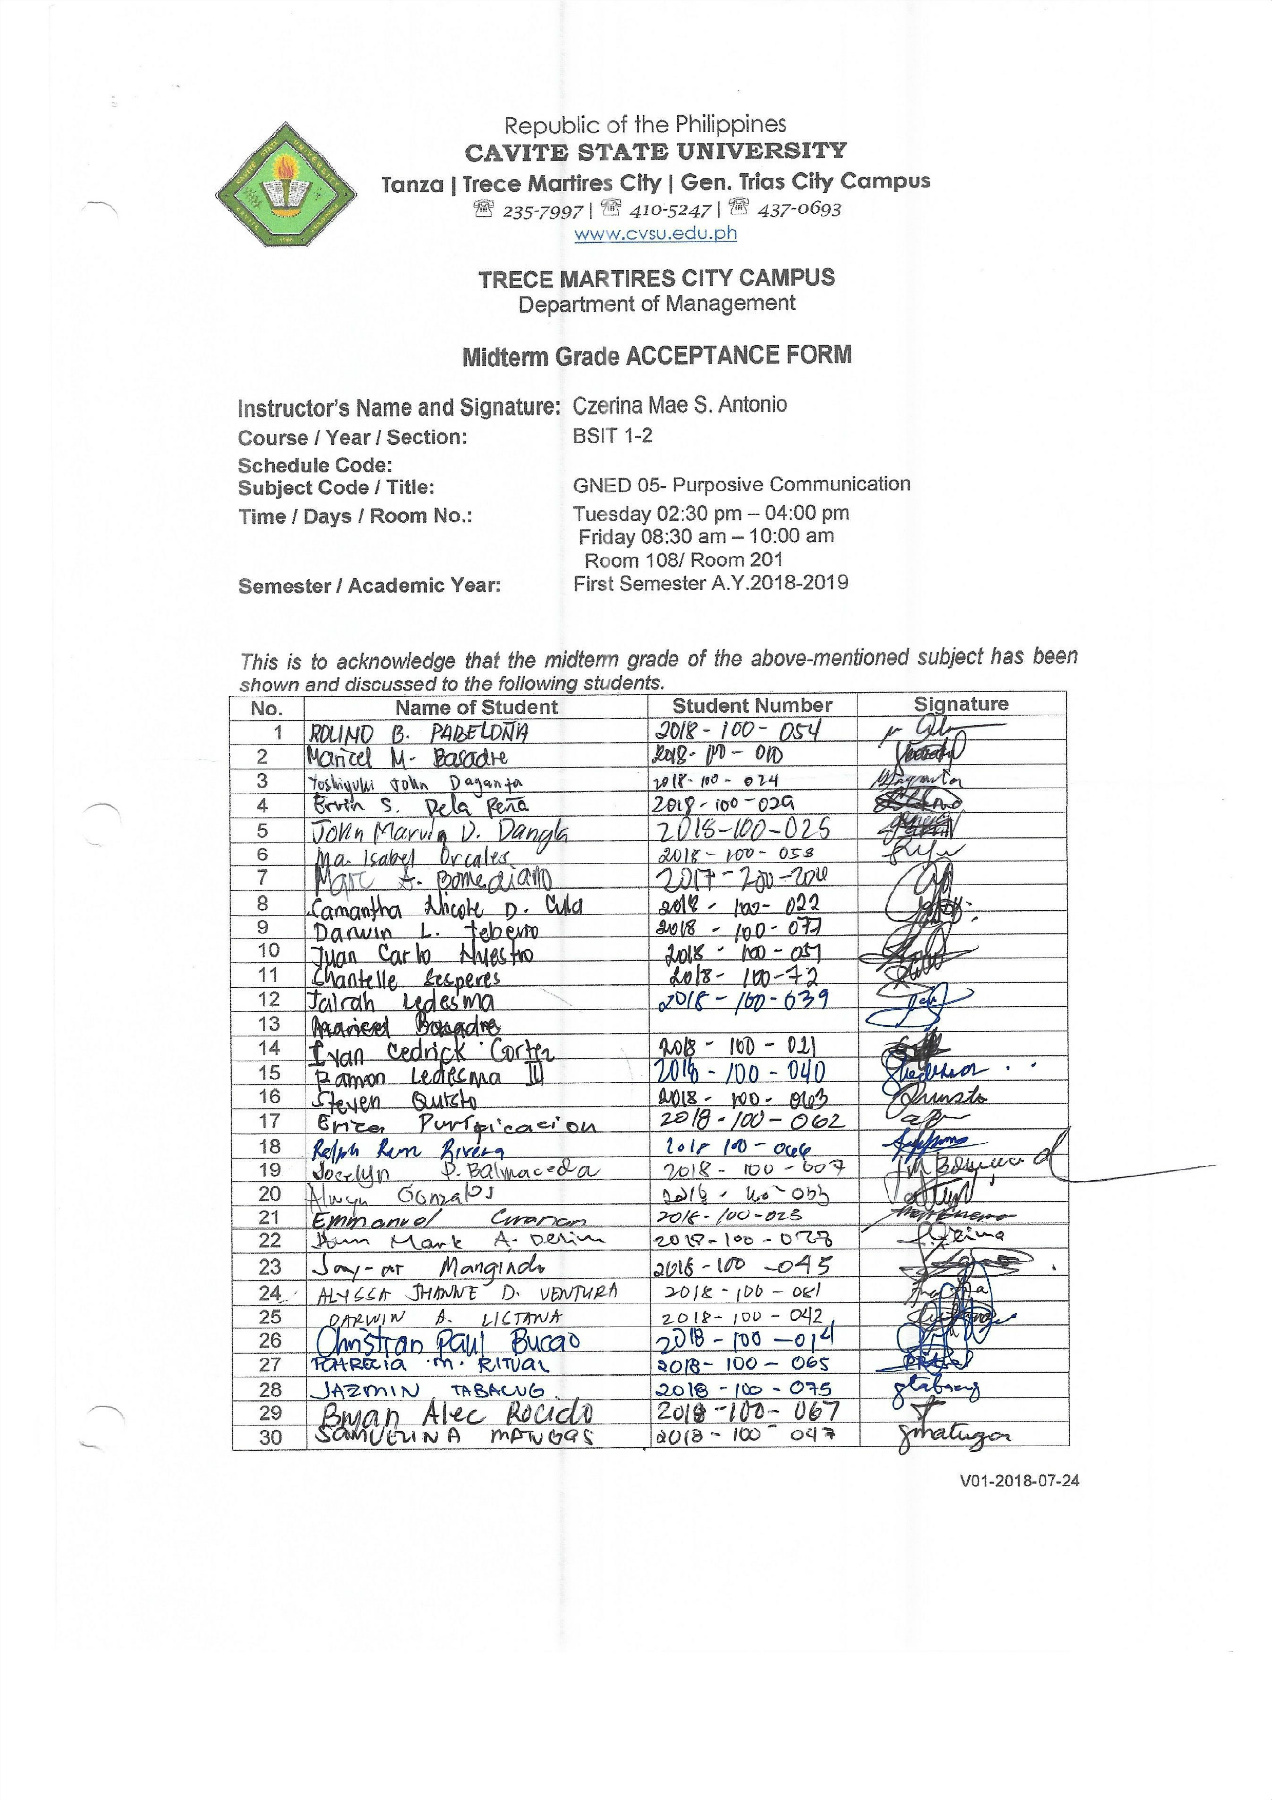 Republic of the Philippines
CAVITE STATE UNIVERSITY
Tanza | Trece Martires City | Gen. Trias City Campus
☏ 235-7997 | ☏ 410-5247 | ☏ 437-0693
www.cvsu.edu.ph
TRECE MARTIRES CITY CAMPUS
Department of Management
Midterm Grade ACCEPTANCE FORM
Instructor's Name and Signature: Czerina Mae S. Antonio
Course / Year / Section: BSIT 1-2
Schedule Code:
Subject Code / Title: GNED 05- Purposive Communication
Time / Days / Room No.: Tuesday 02:30 pm – 04:00 pm
Friday 08:30 am – 10:00 am
Room 108/ Room 201
Semester / Academic Year: First Semester A.Y.2018-2019
This is to acknowledge that the midterm grade of the above-mentioned subject has been
shown and discussed to the following students.
No. Name of Student Student Number Signature
1 ROLIND B. PABELOÑA 2018-100-054
2 Maricel M. Basadre 2018-100-010
3 Yoshiyuki John Daganta 2018-100-024
4 Ervin S. Dela Peña 2018-100-029
5 John Marvin D. Dangla 2018-100-025
6 Ma. Isabel Orcales 2018-100-053
7 Marc A. Bomediano 2017-200-
8 Samantha Nicole D. 2018-100-022
9 Darwin L. Teberio 2018-100-077
10 Juan Carlo Nuestro 2018-100-051
11 Chantelle Sesperes 2018-100-72
12 Jairah Ledesma 2018-100-039
13
14 Ivan Cedrick Cortez 2018-100-021
15 Ramon Ledesma III 2018-100-040
16 Steven Quisto 2018-100-063
17 Erica Purificacion 2018-100-062
18 Ralph Rem Rivera 2018 100-066
19 Jocelyn P. Balmaceda 2018-100-007
20 Alwyn Gonzales
21 Emmanuel 2018-100-023
22 Mark A. 2018-100-028
23 Jay-ar Mangindo 2018-100-045
24 ALYSSA JHANNE D. VENTURA 2018-100-081
25 DARWIN A. LICTANA 2018-100-042
26 Christian Paul Bucao 2018-100-014
27 PATRECIA M. RITUAL 2018-100-065
28 JAZMIN TABACUG 2018-100-075
29 Bryan Alec Rocido 2018-100-067
30 SAMUELINA MANUGAS 2018-100-047
V01-2018-07-24